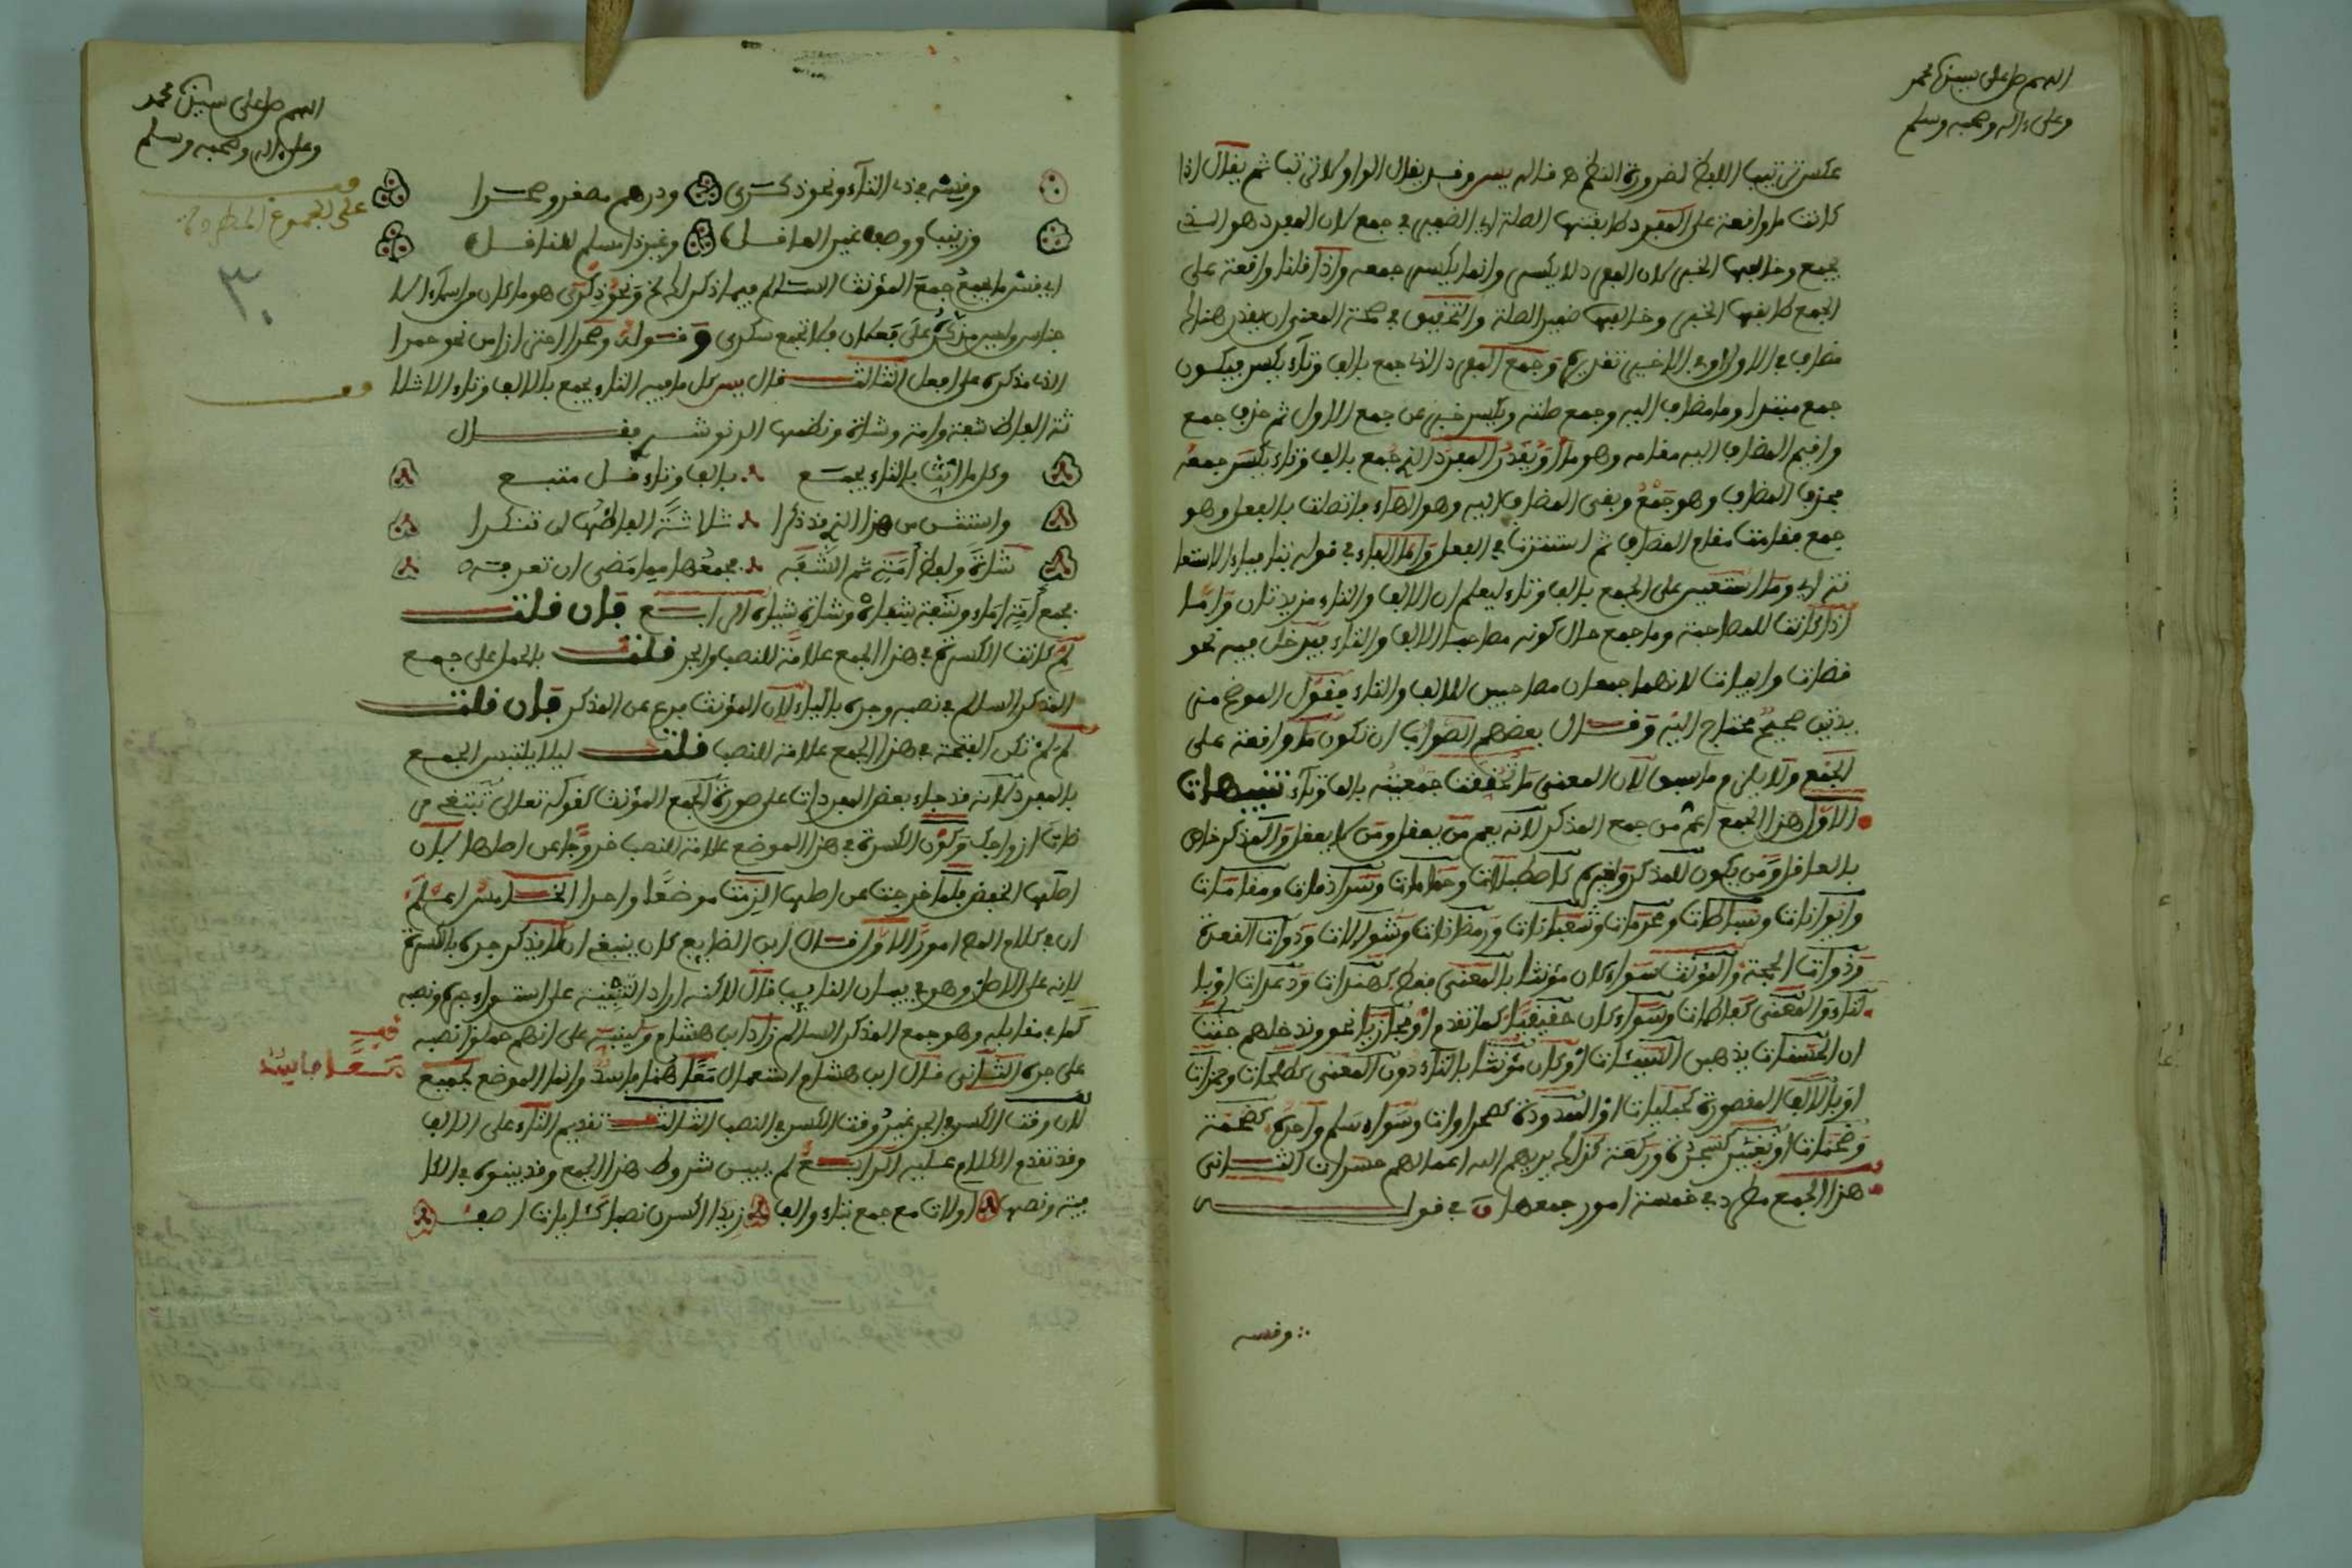 اللهم صل على سيدنا محمد
وعلى ءاله وصحبه وسلم
عكس ترتيب اللفظ لضرورة النظم قاله يس وقد يقال الواو لا ترتب ثم يقال إذا
كانت ما واقعة على المفرد طابقتها الصلة أي الضمير في جمع لأن المفرد هو الذي
يجمع وخالفها الخبر لأن المفرد لا يكسر وإنما يكسر جمعه وإذا قلنا واقعة على
الجمع طابقها الخبر وخالفها ضمير الصلة والتحقيق في صحة المعنى أن يقدر هنا
مضاف في الأول أو في الأخير تقديره وجمع المفرد الذي جمع بألف وتاء يكسر فيكون
جمع مبتدا وما مضاف إليه وجمع صلته ويكسر خبر عن جمع الأول ثم حذف جمع
وأقيم المضاف إليه مقامه وهو ما أو يقدر المفرد الذي جمع بألف وتاء يكسر جمعه
فحذف المضاف وهو جمع وبقي المضاف إليه وهو الهاء فاتصلت بالفعل وهو
جمع فقامت مقام المضاف ثم استترت في الفعل وأما الباء في قوله بتا فباء الاستعا
نة أي وما استعين على الجمع بألف وتاء ليعلم أن الألف والتاء مزيدتان وأما
إذا كانت للمصاحبة وما جمع حال كونه مصاحبا للألف والتاء فيدخل فيه نحو
قضات وأبيات لأنهما جمعان مصاحبين للألف والتاء فقول الموضح متى
بدئن صحيح محتاج إليه وقال بعضهم الصواب أن تكون ما واقعة على
الجمع ولا يلزم ما سبق لأن المعنى ما تحققت جمعيته بألف وتاء تنبيهات
الأول هذا الجمع أعم من جمع المذكر لأنه يعم من يعقل ومن لا يعقل والمذكر خاص
بالعاقل ومن يكون للمذكر وغيره كاصطبلات وحمامات وسرادقات ومقامات
وإيوانات وبساطات ومحرمات وشعبانات ورمضانات وشوالات وذوات القعدة
وذوات الحجة والمؤنث سواء كان مؤنثا بالمعنى فقط كهندات ودعدات أو با
لتاء والمعنى كفاطمات وسواء كان حقيقيا كما تقدم أو مجازيا نحو وندخلهم جنت
إن الحسنات يذهبن السيئات أو كان مؤنثا بالتاء دون المعنى كطلحات وحمزات
أو بالألف المقصورة كحبليات أو الممدودة كصحراوات وسواء سلم واحده كضخمة
وضخمات أو تغير كسجدة وركعة كذلك يريهم الله أعمالهم حسرات الثاني
هذا الجمع مطرد في خمسة أمور جمعها ق في قوله
وقسه
اللهم صل على سيدنا محمد
وعلى ءاله وصحبه وسلم
وقسه في ذي التاء ونحو ذكرى ودرهم مصغر وصحرا
وزينب ووصف غير العاقل وغير ذا مسلم للناقل
قف
على الجموع المطردة
٣٠
أي قس ما يجمع جمع المؤنث السالم فيما ذكر ونحو ذكرى هو ما كان من أسماء الأ
جناس وليس مذكره على فعلان فلا تجمع سكرى وقوله وصحرا احترازا من نحو حمرا
الذي مذكره على أفعل الثالث قال يس كل ما فيه التاء يجمع بالألف وتاء إلا ثلا
ثة ألفاظ شفة وأمة وشاة ونظمها الونوشي فقال
وكل ما أنث بالتاء يجمع بألف وتاء قل متبع
واستثن من هذا الذي قد ذكرا ثلاثة ألفاظها لن تنكرا
شاة ولفظ أمة ثم الشفه فجمعها فيما مضى لن تعرفه
فجمع أمة إماء وشفة شفاه وشاة شياه الرابع فإن قلت
لم كانت الكسرة في هذا الجمع علامة للنصب والجر قلت بالحمل على جمع
المذكر السالم في نصبه وجره بالياء لأن المؤنث فرع عن المذكر فإن قلت
لم لم تكن الفتحة في هذا الجمع علامة للنصب قلت ليلا يلتبس الجمع
بالمفرد لأنه قد جاء بعض المفردات على صورة الجمع المؤنث كقوله تعالى تبتغي مر
ضات أزواجك وكون الكسرة في هذا الموضع علامة للنصب خروجا عن أصلها لأن
أصلها الخفض فلما خرجت عن أصلها ألزمت موضعا واحدا الخامس اعلم
أن في كلام المص أمورا الأول قال ابن الضايع كان ينبغي أن لا يذكر جره بالكسرة
لأنه على الأصل وهو في بيان النايب قال لاكنه أراد التنبيه على استواء جره ونصبه
كما في مقابله وهو جمع المذكر السالم زاد ابن هشام ولينبه على أنهم حملوا نصبه
على جره الثاني قال ابن هشام استعمال معا هنا فاسد وإنما الموضع لجميع
لأن وقت الكسر في الجر غير وقت الكسر في النصب الثالث تقديم التاء على الألف
وقد تقدم الكلام عليه الرابع لم يبين شروط هذا الجمع وقد بينوه في الكا
فية ونصها أولات مع جمع بتاء وألف زيدا اكسرن نصبا كثابات أصف
قف
معا جاييته